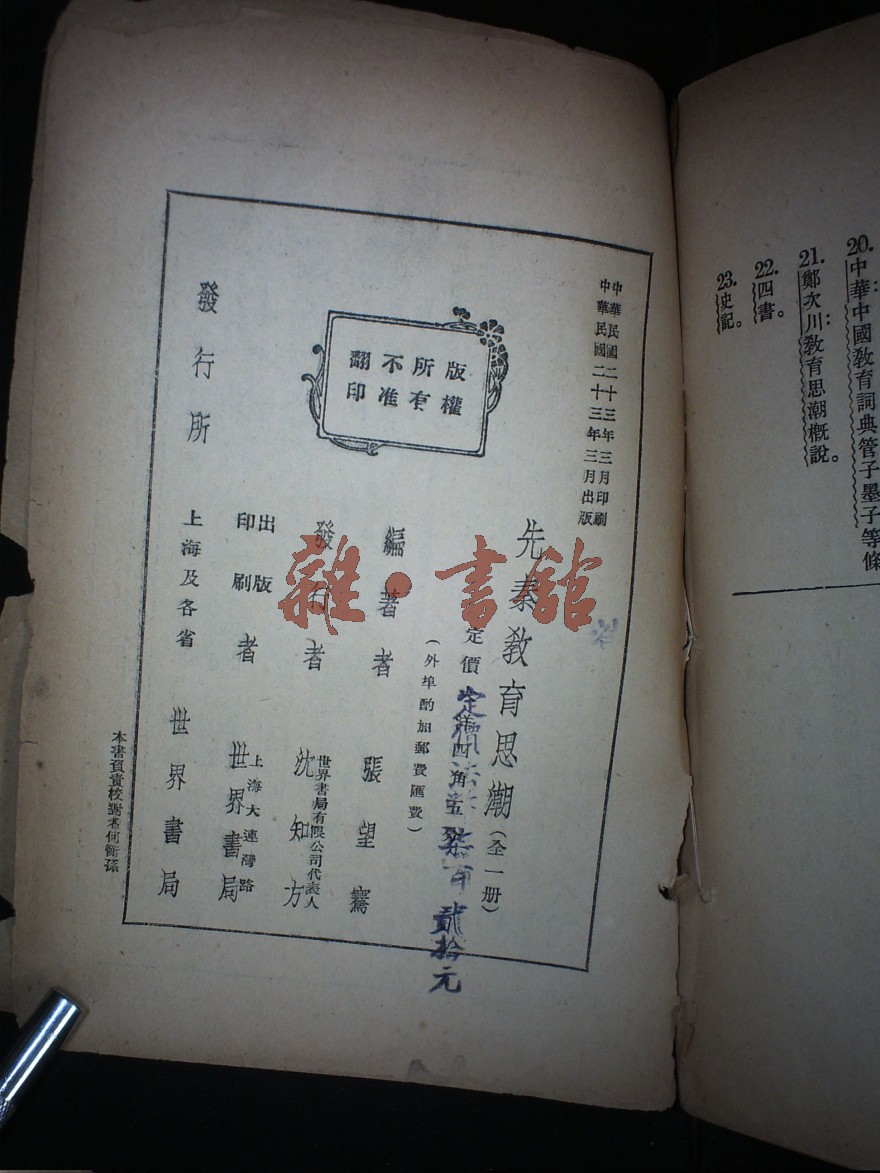 20.中華:中國教育詞典管子墨子等條
21.鄭次川:教育思潮概說。
22.四書。
23.史記。
中華民國二十三年三月印刷
中華民國二十三年三月出版
版權所有
不准翻印
先秦教育思潮(全一册)
定價
四角五
定價
柒百貳拾元
(外埠酌加郵費匯費)
編著者 張望騫
發行者 世界書局有限公司代表人 沈知方
出版印刷者 上海大連灣路 世界書局
發行所 上海及各省 世界書局
本書負責校對者何衡孫
雜·書館